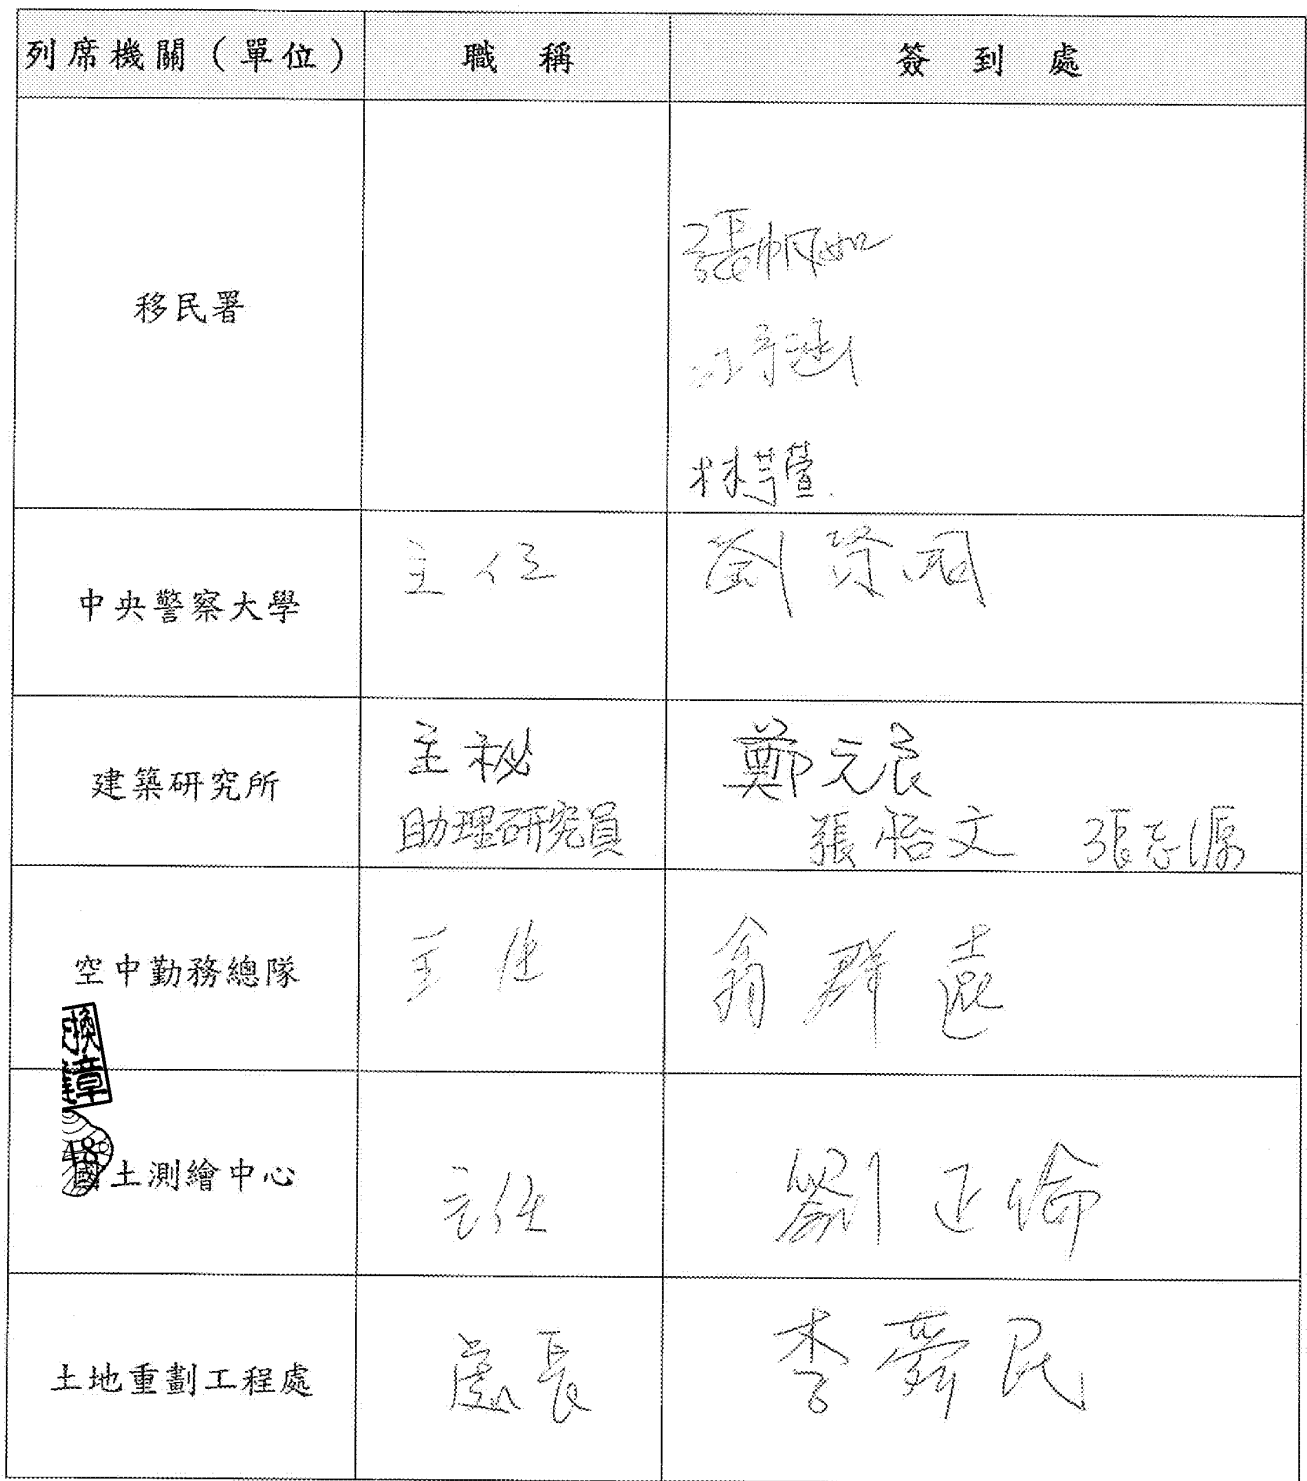 列席機關（單位） 職稱 簽到處
移民署
張帆如
林芊萱
中央警察大學 主任 劉
建築研究所
主秘 鄭元良
助理研究員 張怡文 張志源
空中勤務總隊 主任 翁群
換章
國土測繪中心 主任 劉正倫
土地重劃工程處 處長 李舜民